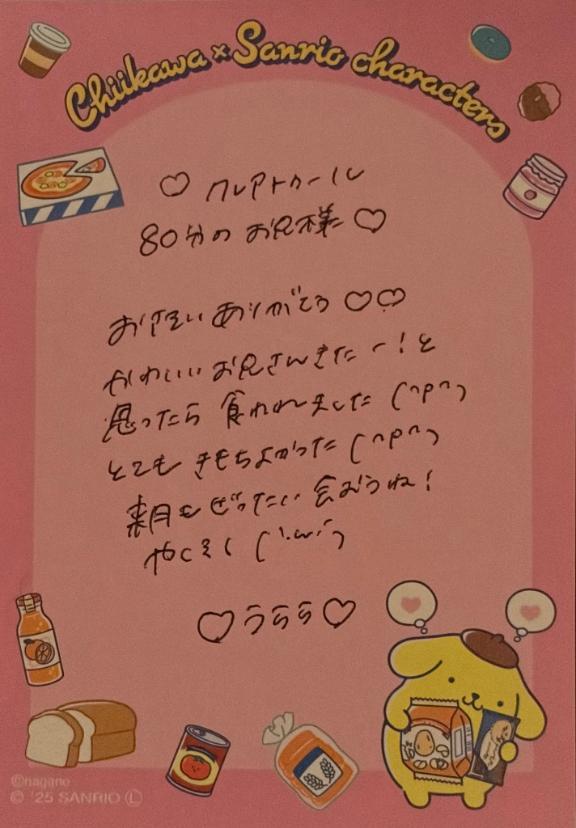 Chiikawa × Sanrio characters
♡ クレアトゥール
80分の お兄様 ♡
お誘い ありがとう ♡♡
かわいい お兄さんきたー！と
思ったら 食われました (^p^)
とても きもちよかった (^p^)
来月も ぜったい 会おうね！
やくそく
♡ うらら ♡
©nagano
© '25 SANRIO Ⓛ